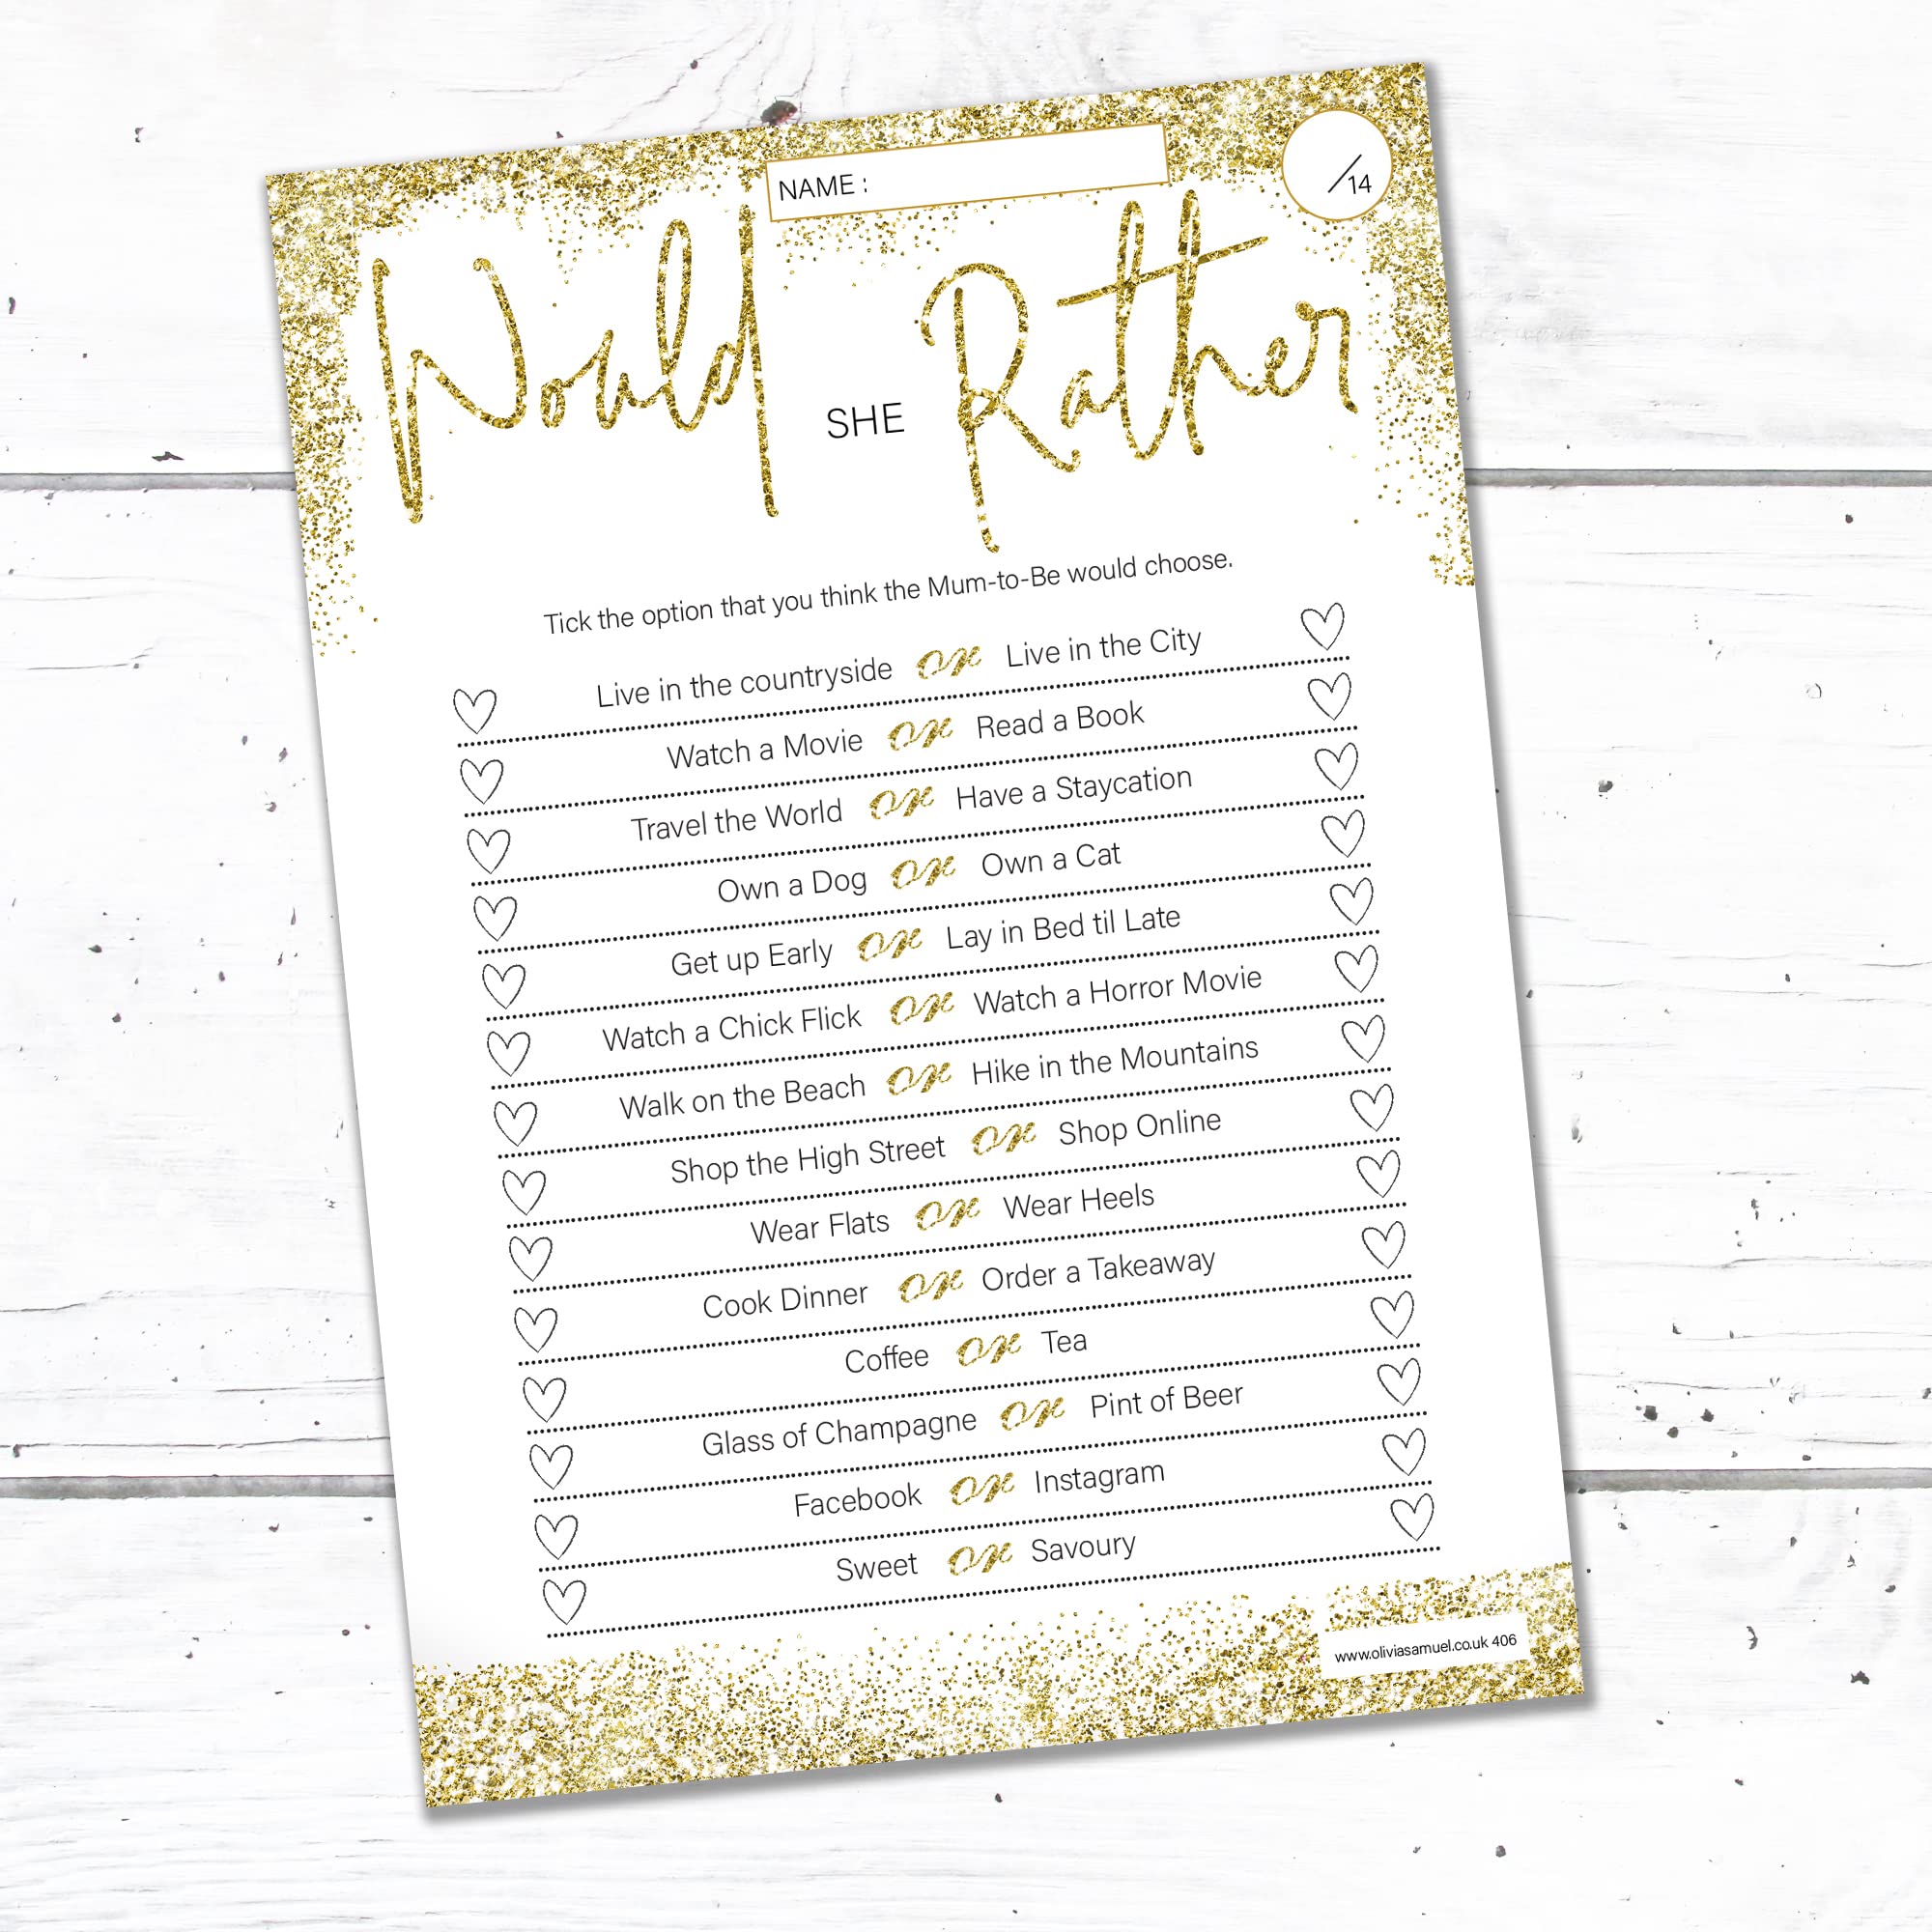 NAME :
/14
Would SHE Rather
Tick the option that you think the Mum-to-Be would choose.
Live in the countryside or Live in the City
Watch a Movie or Read a Book
Travel the World or Have a Staycation
Own a Dog or Own a Cat
Get up Early or Lay in Bed til Late
Watch a Chick Flick or Watch a Horror Movie
Walk on the Beach or Hike in the Mountains
Shop the High Street or Shop Online
Wear Flats or Wear Heels
Cook Dinner or Order a Takeaway
Coffee or Tea
Glass of Champagne or Pint of Beer
Facebook or Instagram
Sweet or Savoury
www.oliviasamuel.co.uk 406